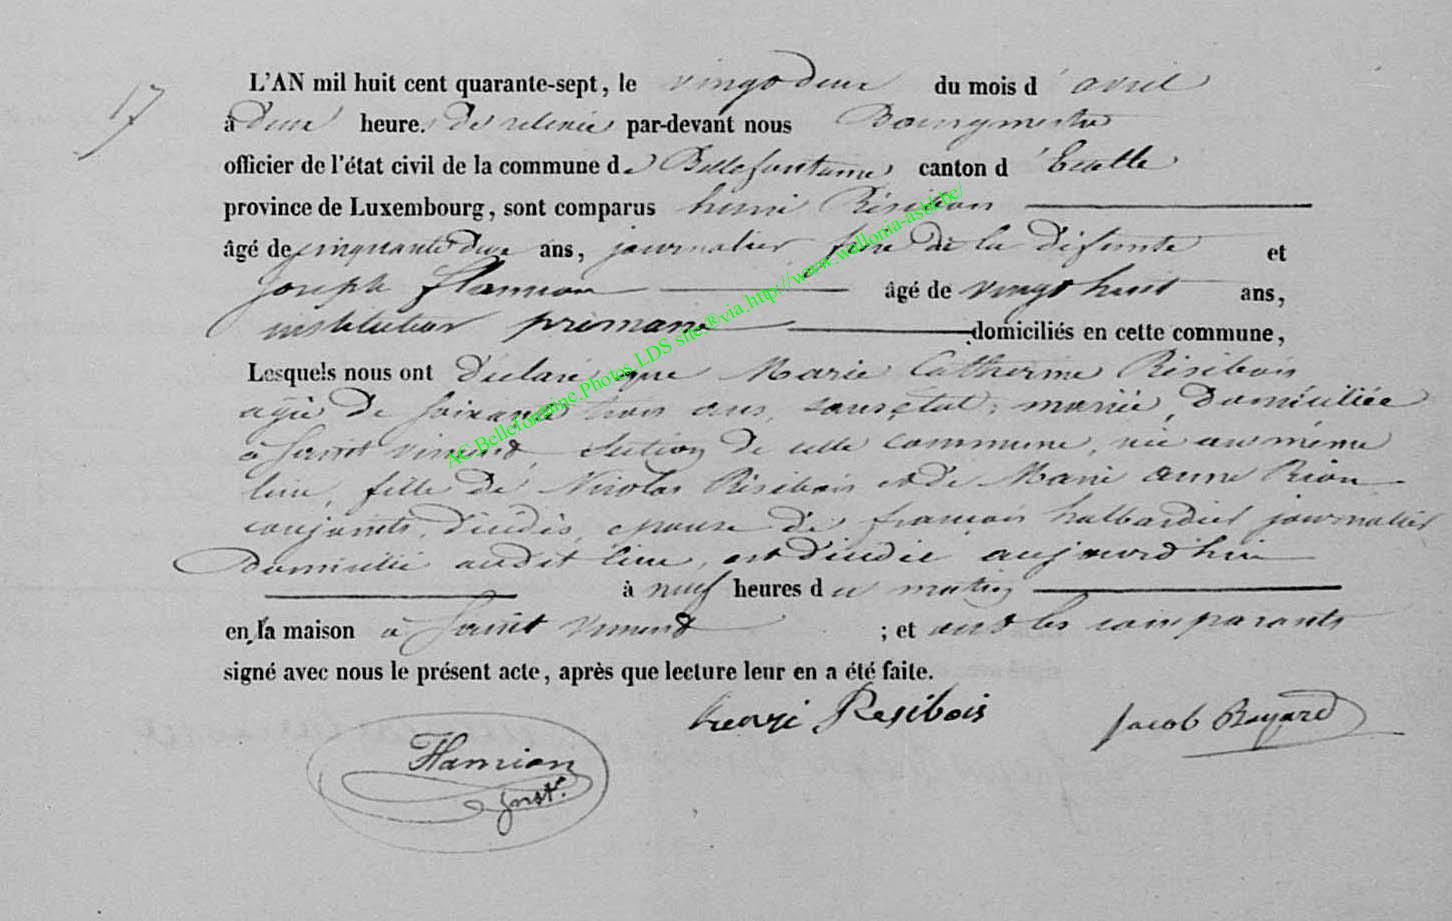 17
L'AN mil huit cent quarante-sept, le vingt deux du mois d'avril
à deux heures de relevée par-devant nous Bourgmestre
officier de l'état civil de la commune de Bellefontaine canton d'Etalle
province de Luxembourg, sont comparus henri Résibois
âgé de cinquante deux ans, journalier, frère de la défunte et
Joseph Flamion âgé de vingt huit ans,
instituteur primaire domiciliés en cette commune,
Lesquels nous ont déclaré que Marie Catherine Résibois
agée de soixante trois ans, sans état, mariée, domiciliée
à Saint Vincent, section de cette commune, née au même
lieu, fille de Nicolas Résibois et de Marie anne Rion
conjoints, décédés, épouse de françois halbardier journalier
domicilié audit lieu, est décédée aujourd'hui
à neuf heures du matin
en la maison à Saint Vincent ; et ont les comparants
signé avec nous le présent acte, après que lecture leur en a été faite.
henri Resibois
Jacob Bayard
Flamion
Inst.r
AC Bellefontaine Photos LDS site ® via http://www.wallonia-asbl.be/